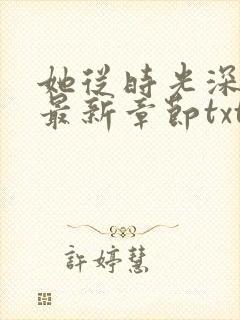 她從時光深
最新章節txt
許婷慧